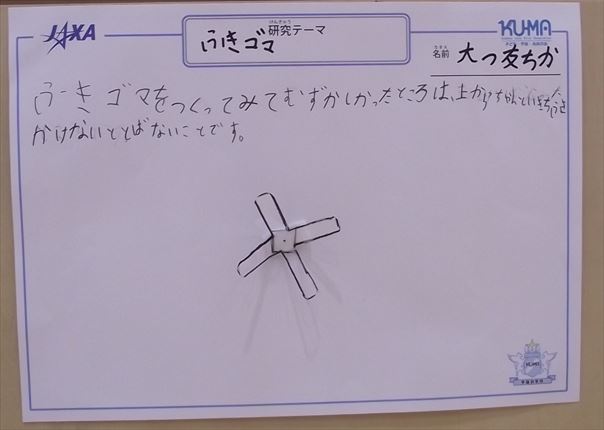 JAXA
けんきゅう
研究テーマ
ふきゴマ
KU-MA
なまえ
名前 大つ友ちか
ふーきゴマをつくってみてむずかしかったところは、上からちゃんといきを
かけないととばないことです。
KU-MA